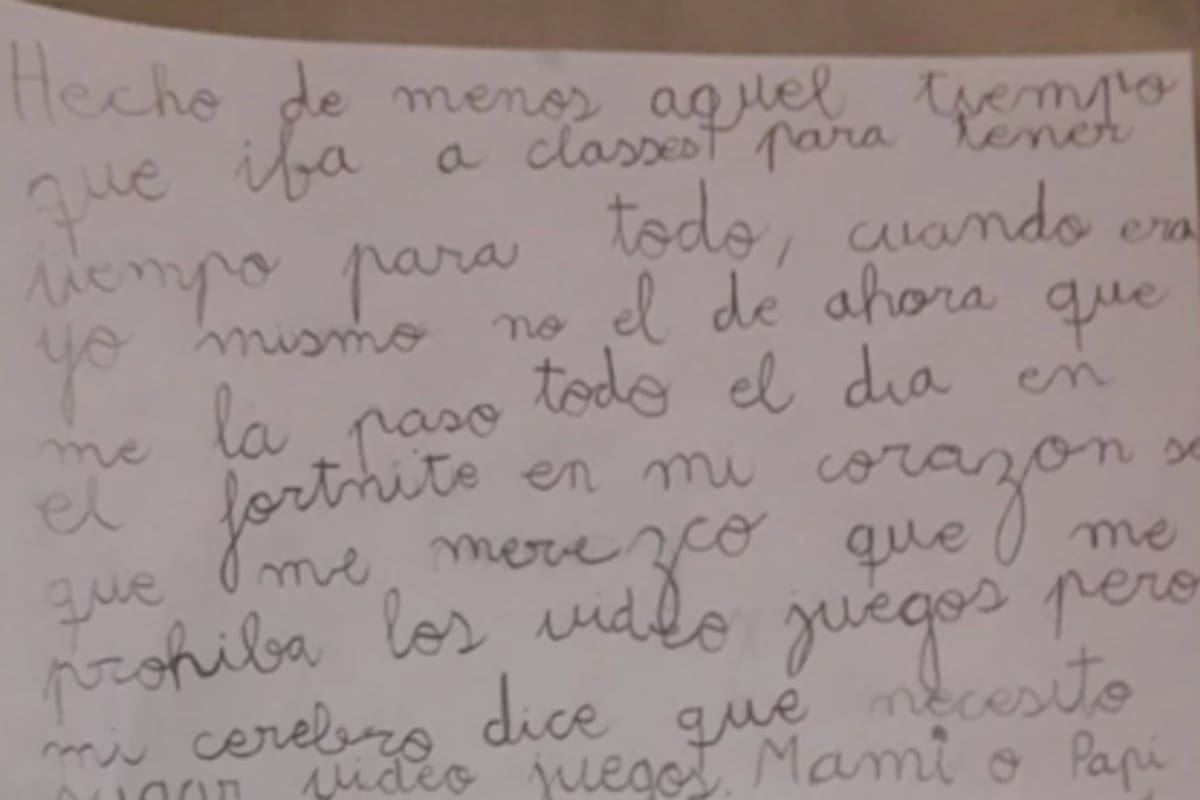 Hecho de menos aquel tiempo
que iba a classes para tener
tiempo para todo, cuando era
yo mismo no el de ahora que
me la paso todo el dia en
el fortnite en mi corazon se
que me merezco que me
prohiba los video juegos pero
mi cerebro dice que necesito
jugar video juegos. Mami o Papi